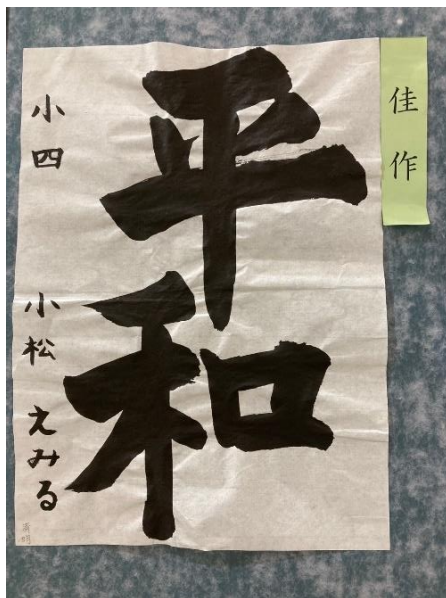 佳作
平和
小四 小松 えみる